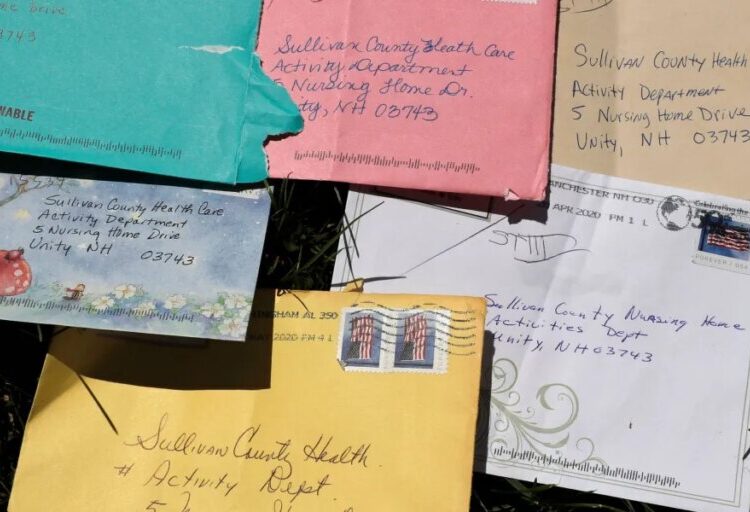 Drive
3743
ABLE
Sullivan County Heath Care
Activity Department
5 Nursing Home Dr.
ty, NH 03743
Sullivan County Health
Activity Department
5 Nursing Home Drive
Unity, NH 03743
Sullivan County Health Care
Activity Department
5 Nursing Home Drive
Unity NH 03743
ANCHESTER NH 030
APR 2020 PM 1 L
FOREVER / USA
Sullivan County Nursing Home
Activities Dept
Unity, NH 03743
INGHAM AL 350
MAY 2020 PM 4 L
Sullivan County Health
# Activity Dept